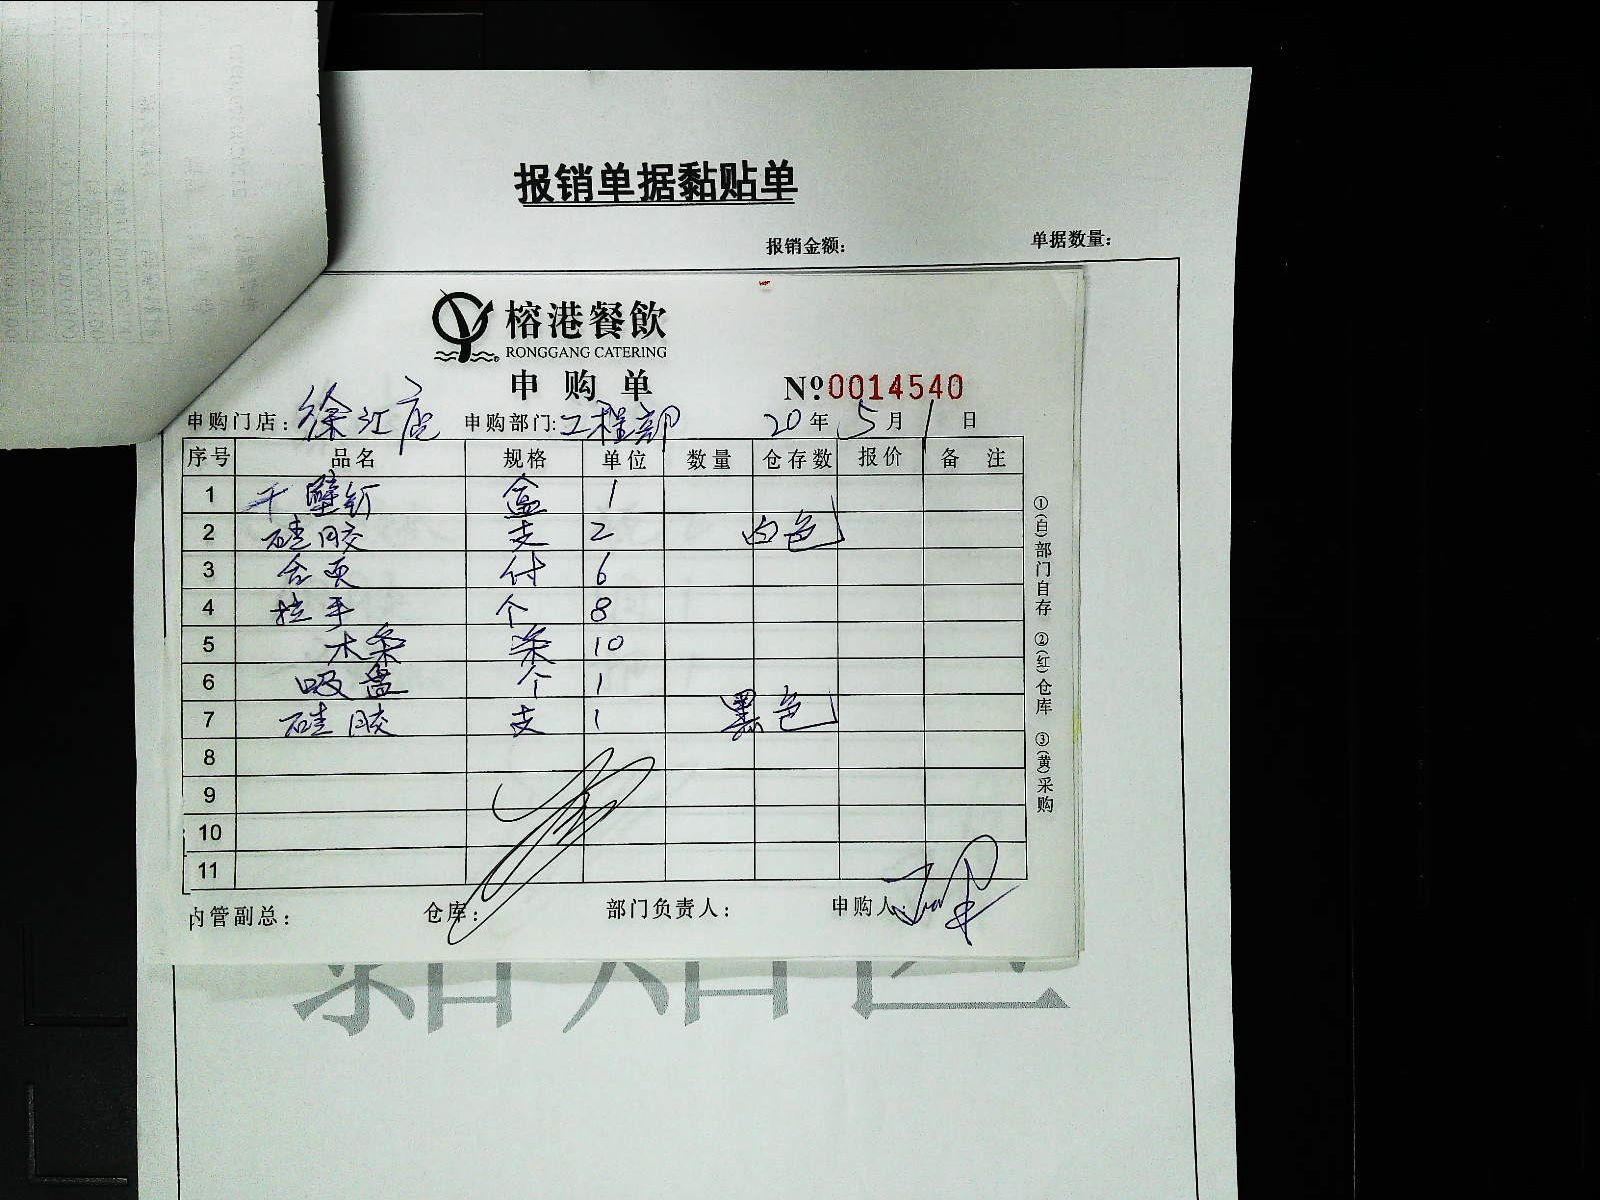 报销单据黏贴单
报销金额: 单据数量:
榕港餐飲
RONGGANG CATERING
申购单 №0014540
申购门店: 徐江店 申购部门: 工程部 20年5月1日
序号 品名 规格 单位 数量 仓存数 报价 备注
1 干壁钉 盒 1
2 硅胶 支 2 白色
3 合页 付 6
4 拉手 个 8
5 木条 条 10
6 吸盘 个 1
7 硅胶 支 1 黑色
8
9
10
11
内管副总: 仓库: 部门负责人: 申购人:
①(白)部门自存 ②(红)仓库 ③(黄)采购